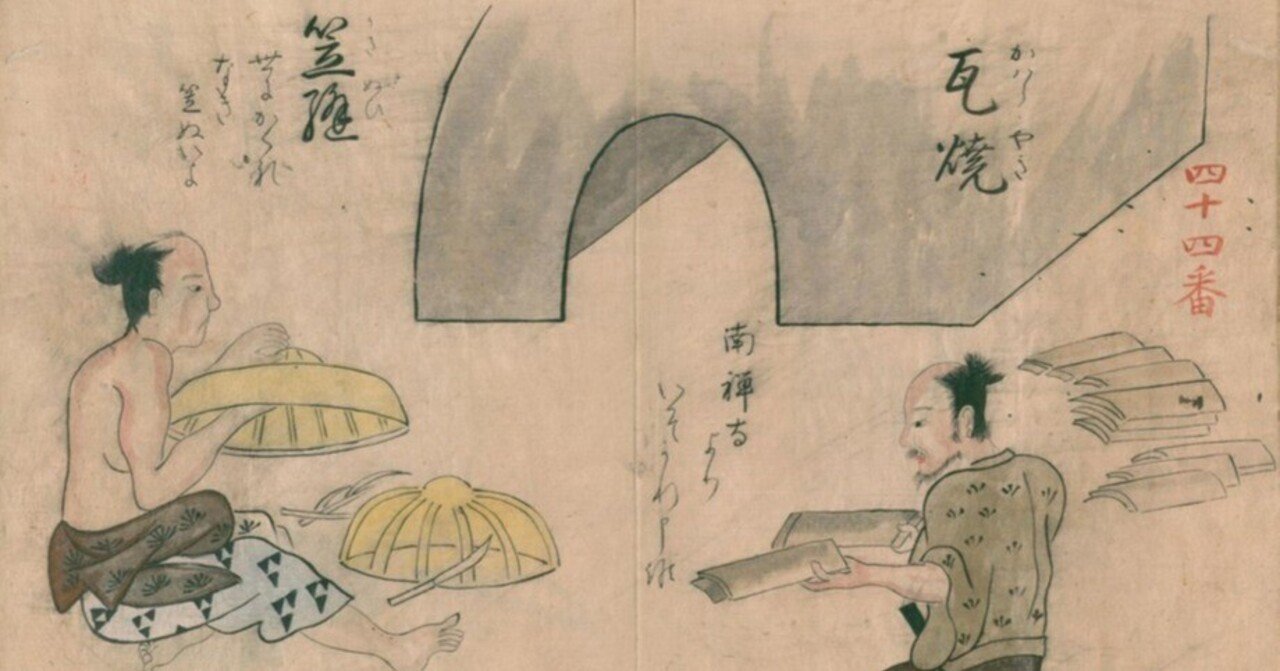 四十四番
かはらやき
瓦焼
南禅寺
より
かさぬひ
笠縫
世にかくれ
なき
笠ぬいよ